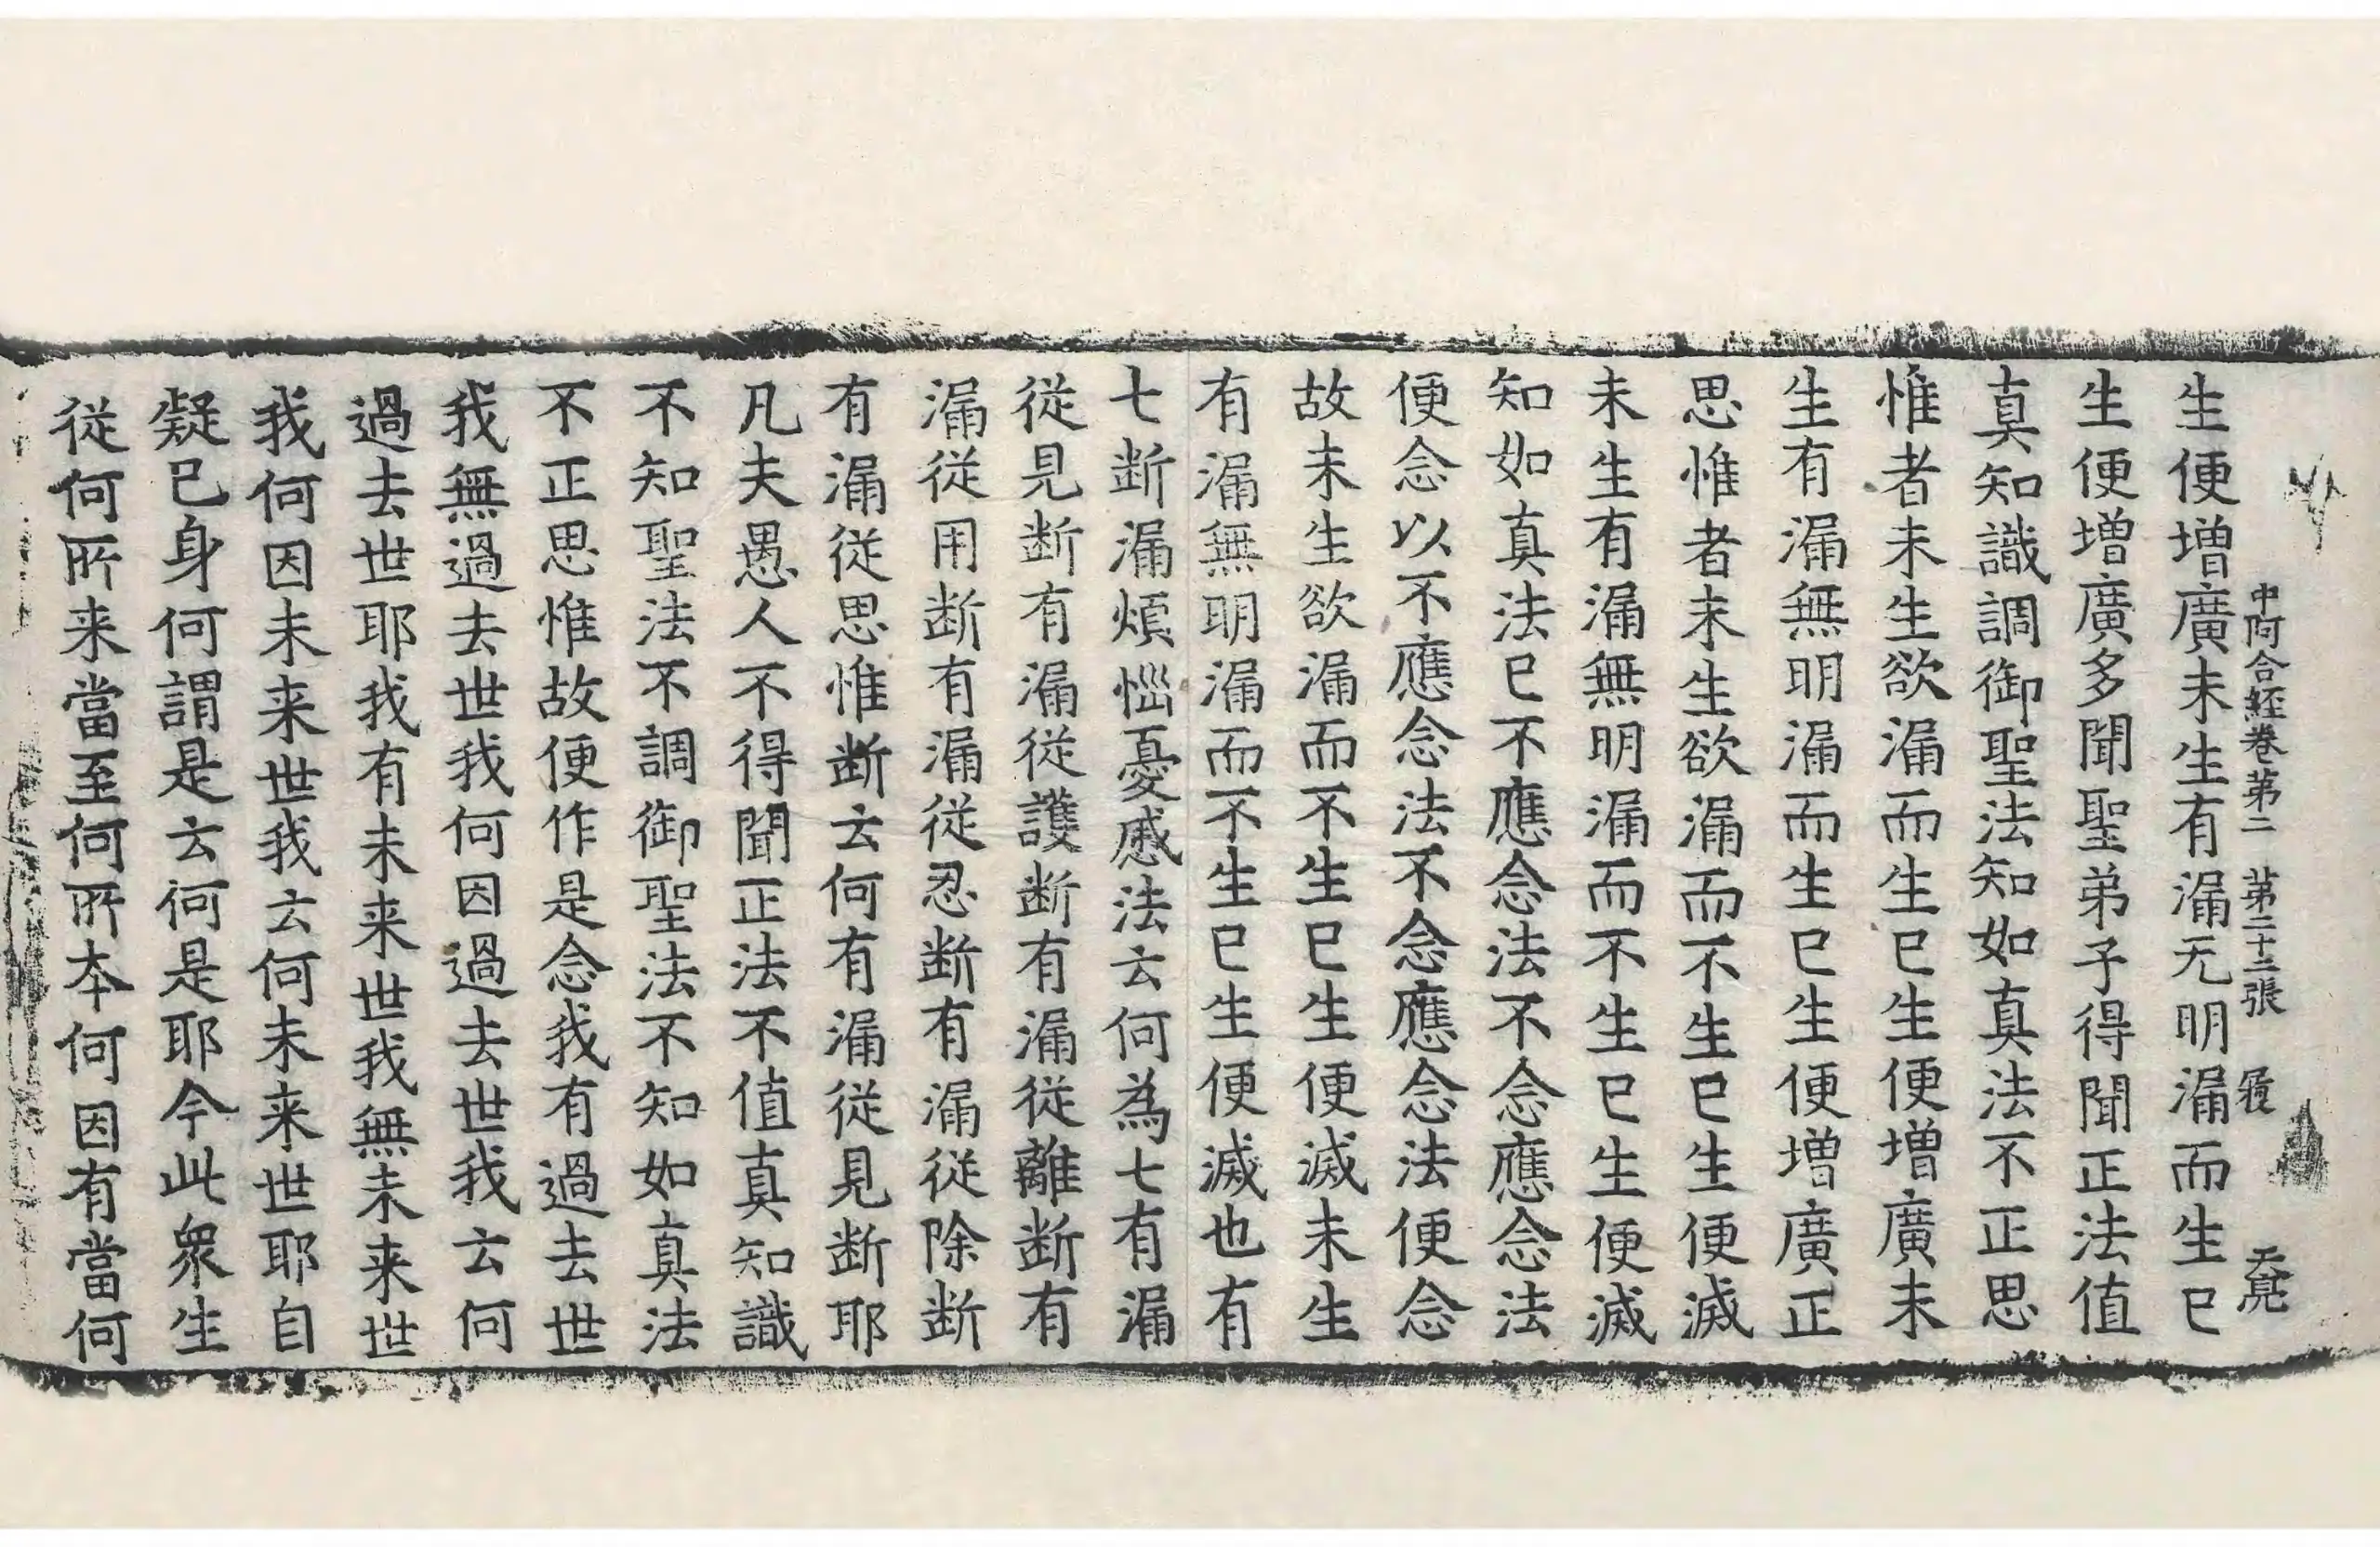 中阿含経卷第二　第二十三張　履　天亮
生便增廣未生有漏无明漏而生已
生便增廣多聞聖弟子得聞正法值
真知識調御聖法知如真法不正思
惟者未生欲漏而生已生便增廣未
生有漏無明漏而生已生便增廣正
思惟者未生欲漏而不生已生便滅
未生有漏無明漏而不生已生便滅
知如真法已不應念法不念應念法
便念以不應念法不念應念法便念
故未生欲漏而不生已生便滅未生
有漏無明漏而不生已生便滅也有
七断漏煩惱憂慼法云何為七有漏
從見断有漏從護断有漏從離断有
漏從用断有漏從忍断有漏從除断
有漏從思惟断云何有漏從見断耶
凡夫愚人不得聞正法不值真知識
不知聖法不調御聖法不知如真法
不正思惟故便作是念我有過去世
我無過去世我何因過去世我云何
過去世耶我有未来世我無未来世
我何因未来世我云何未来世耶自
疑己身何謂是云何是耶今此衆生
從何所来當至何所本何因有當何